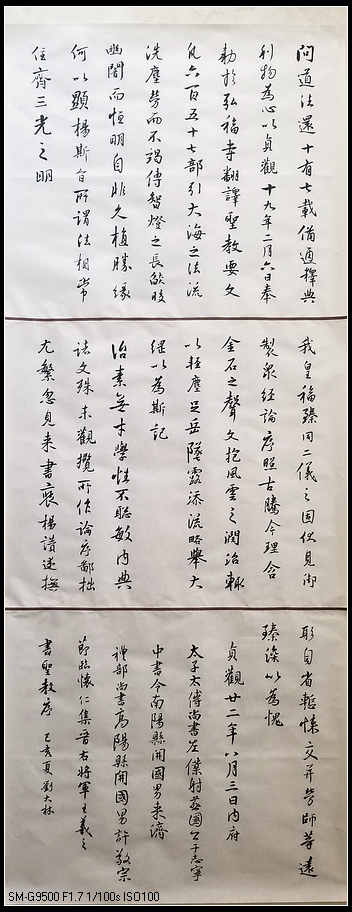 问道法還十有七載備通釋典
利物為心以貞觀十九年二月六日奉
勅於弘福寺翻譯聖教要文
凡六百五十七部引大海之法流
洗塵勞而不竭傳智燈之長焰皎
幽闇而恒明自非久植勝緣
何以顯揚斯旨所謂法相常
住齊三光之明
我皇福臻同二儀之固伏見御
製眾經論序照古騰今理含
金石之聲文抱風雲之潤治輒
以輕塵足岳墜露添流略舉大
綱以為斯記
治素無才學性不聰敏內典
諸文殊未觀攬所作論序鄙拙
尤繁忽見來書褒揚讚述撫
躬自省慙悚交并勞師等遠
臻深以為愧
貞觀廿二年八月三日內府
太子太傅尚書左僕射燕國公于志寧
中書令南陽縣開國男來濟
禮部尚書高陽縣開國男許敬宗
節臨懷仁集晉右將軍王羲之
書聖教序 己亥夏劉大林
SM-G9500 F1.7 1/100s ISO100